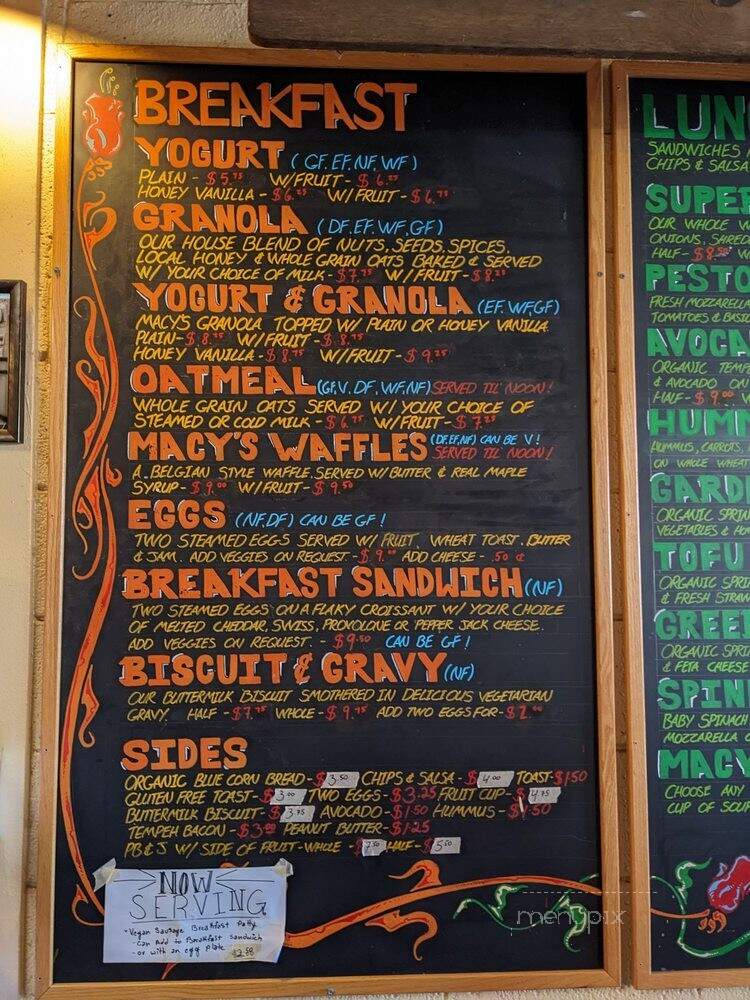 BREAKFAST
YOGURT (GF, EF, NF, WF)
PLAIN - $5.75 W/FRUIT - $6.25
HONEY VANILLA - $6.25 W/FRUIT - $6.75
GRANOLA (DF, EF, WF, GF)
OUR HOUSE BLEND OF NUTS, SEEDS, SPICES,
LOCAL HONEY & WHOLE GRAIN OATS BAKED & SERVED
W/ YOUR CHOICE OF MILK - $7.75 W/FRUIT - $8.25
YOGURT & GRANOLA (EF, WF, GF)
MACY'S GRANOLA TOPPED W/ PLAIN OR HONEY VANILLA
PLAIN - $8.25 W/FRUIT - $8.75
HONEY VANILLA - $8.75 W/FRUIT - $9.25
OATMEAL (GF, V, DF, WF, NF) SERVED TIL' NOON!
WHOLE GRAIN OATS SERVED W/ YOUR CHOICE OF
STEAMED OR COLD MILK - $6.75 W/FRUIT - $7.25
MACY'S WAFFLES (DF, EF, NF) CAN BE V!
SERVED TIL' NOON!
A BELGIAN STYLE WAFFLE SERVED W/ BUTTER & REAL MAPLE
SYRUP - $9.00 W/FRUIT - $9.50
EGGS (NF, DF) CAN BE GF!
TWO STEAMED EGGS SERVED W/ FRUIT, WHEAT TOAST, BUTTER
& JAM. ADD VEGGIES ON REQUEST - $9.00 ADD CHEESE - .50 ¢
BREAKFAST SANDWICH (NF)
TWO STEAMED EGGS ON A FLAKY CROISSANT W/ YOUR CHOICE
OF MELTED CHEDDAR, SWISS, PROVOLONE OR PEPPER JACK CHEESE.
ADD VEGGIES ON REQUEST. - $9.50 CAN BE GF!
BISCUIT & GRAVY (NF)
OUR BUTTERMILK BISCUIT SMOTHERED IN DELICIOUS VEGETARIAN
GRAVY. HALF - $7.75 WHOLE - $9.75 ADD TWO EGGS FOR - $2.00
SIDES
ORGANIC BLUE CORN BREAD - $3.50 CHIPS & SALSA - $4.00 TOAST - $1.50
GLUTEN FREE TOAST - $3.00 TWO EGGS - $3.25 FRUIT CUP - $4.75
BUTTERMILK BISCUIT - $3.75 AVOCADO - $1.50 HUMMUS - $1.50
TEMPEH BACON - $3.00 PEANUT BUTTER - $1.25
PB & J W/ SIDE OF FRUIT - WHOLE - $7.50 HALF - $5.50
NOW
SERVING
*Vegan Sausage Breakfast Patty
- Can Add to Breakfast Sandwich
- or with an egg Plate
LUN
SANDWICHES
CHIPS & SALSA
SUPE
OUR WHOLE W
ONIONS, SHRED
HALF - $8.50 W
PESTO
FRESH MOZZARELLA
TOMATOES & BASIL
AVOCA
ORGANIC TEMP
& AVOCADO ON
HALF - $9.00
HUMM
HUMMUS, CARROTS,
ON WHOLE WHEAT
GARD
ORGANIC SPRIN
VEGETABLES &
TOFU
ORGANIC SPRI
& FRESH STRAW
GREE
ORGANIC SPRI
& FETA CHEESE
SPIN
BABY SPINACH
MOZZARELLA
MACY
CHOOSE ANY
CUP OF SOU
menupix